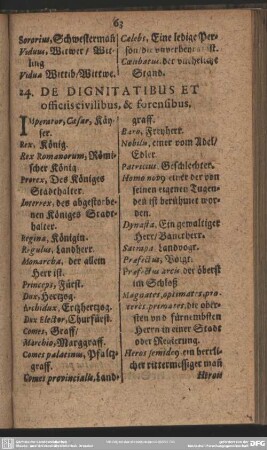 63
Sororius, Schwesterman
Viduus, Witwer / Witling
ling
Vidua Wittib/ Wittwe.
Cælebs. Eine ledige Person/
son, die unverheyrat ist.
Cælibatus, der uneheliche
Stand.
24. DE DIGNITATIBUS ET
officiis civilibus, & forensibus.
IMperator, Cæsar, Käyser.
ser.
Rex, König.
Rex Romanorum, Römischer
scher König
Prorex, Des Königes
Stadthalter.
Interrex, des abgestorbenen
nen Königes Stadthalter.
halter.
Regina, Königin.
Regulus, Landherr.
Monarcha, der allein
Herr ist.
Princeps, Fürst.
Dux, Hertzog.
Archidux, Ertzhertzog.
Dux Elector, Churfürst.
Comes, Graff/
Marchio, Marggraff.
Comes palatinus, Pfaltzgraff.
graff.
Comes provincialis, Landgraff.
graff.
Baro, Freyherr.
Nobilis, einer vom Adel/
Edler
Patricius, Geschlechter.
Homo novus einer der von
seinen eigenen Tugenden
den ist berühmet worden.
den.
Dynasta, Ein gewaltiger
Herr/ Bannerherr.
Satrapa Landvogt.
Præfectus, Voigt.
Præfectus arcis der öberst
im Schloß
Magnates, optimates, proceres,
ceres, primores, die obersten
sten und fürnembsten
Herrn in einer Stadt
oder Regierung.
Heros semideus ein herrlicher
cher rittermessiger man